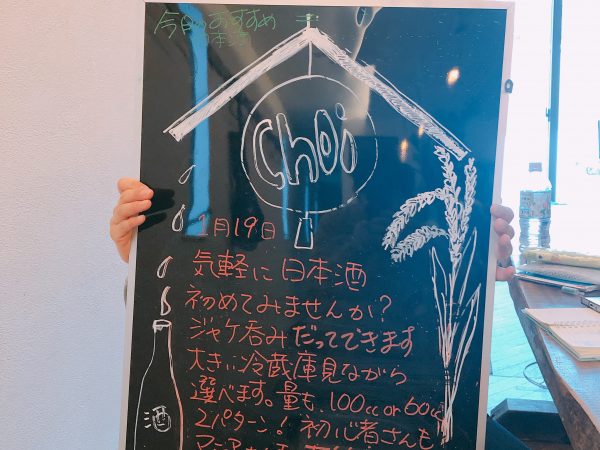 今日のおすすめ
日本酒
Choi
1月19日
気軽に日本酒
初めてみませんか?
ジャケ呑みだってできます
大きい冷蔵庫見ながら
選べます。量も、100cc or 60cc
2パターン! 初心者さんも
酒